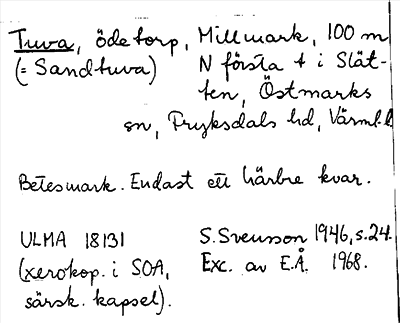 Tuva, ödetorp, Millmark, 100 m
(= Sandtuva) N första t i Slät-
ten, Östmarks
sn, Fryksdals hd, Värml. l.
Betesmark. Endast ett härbre kvar.
ULMA 18131 S. Svensson 1946, s. 24.
(xerokop. i SOA, Exc. av E.Å. 1968.
särsk. kapsel).